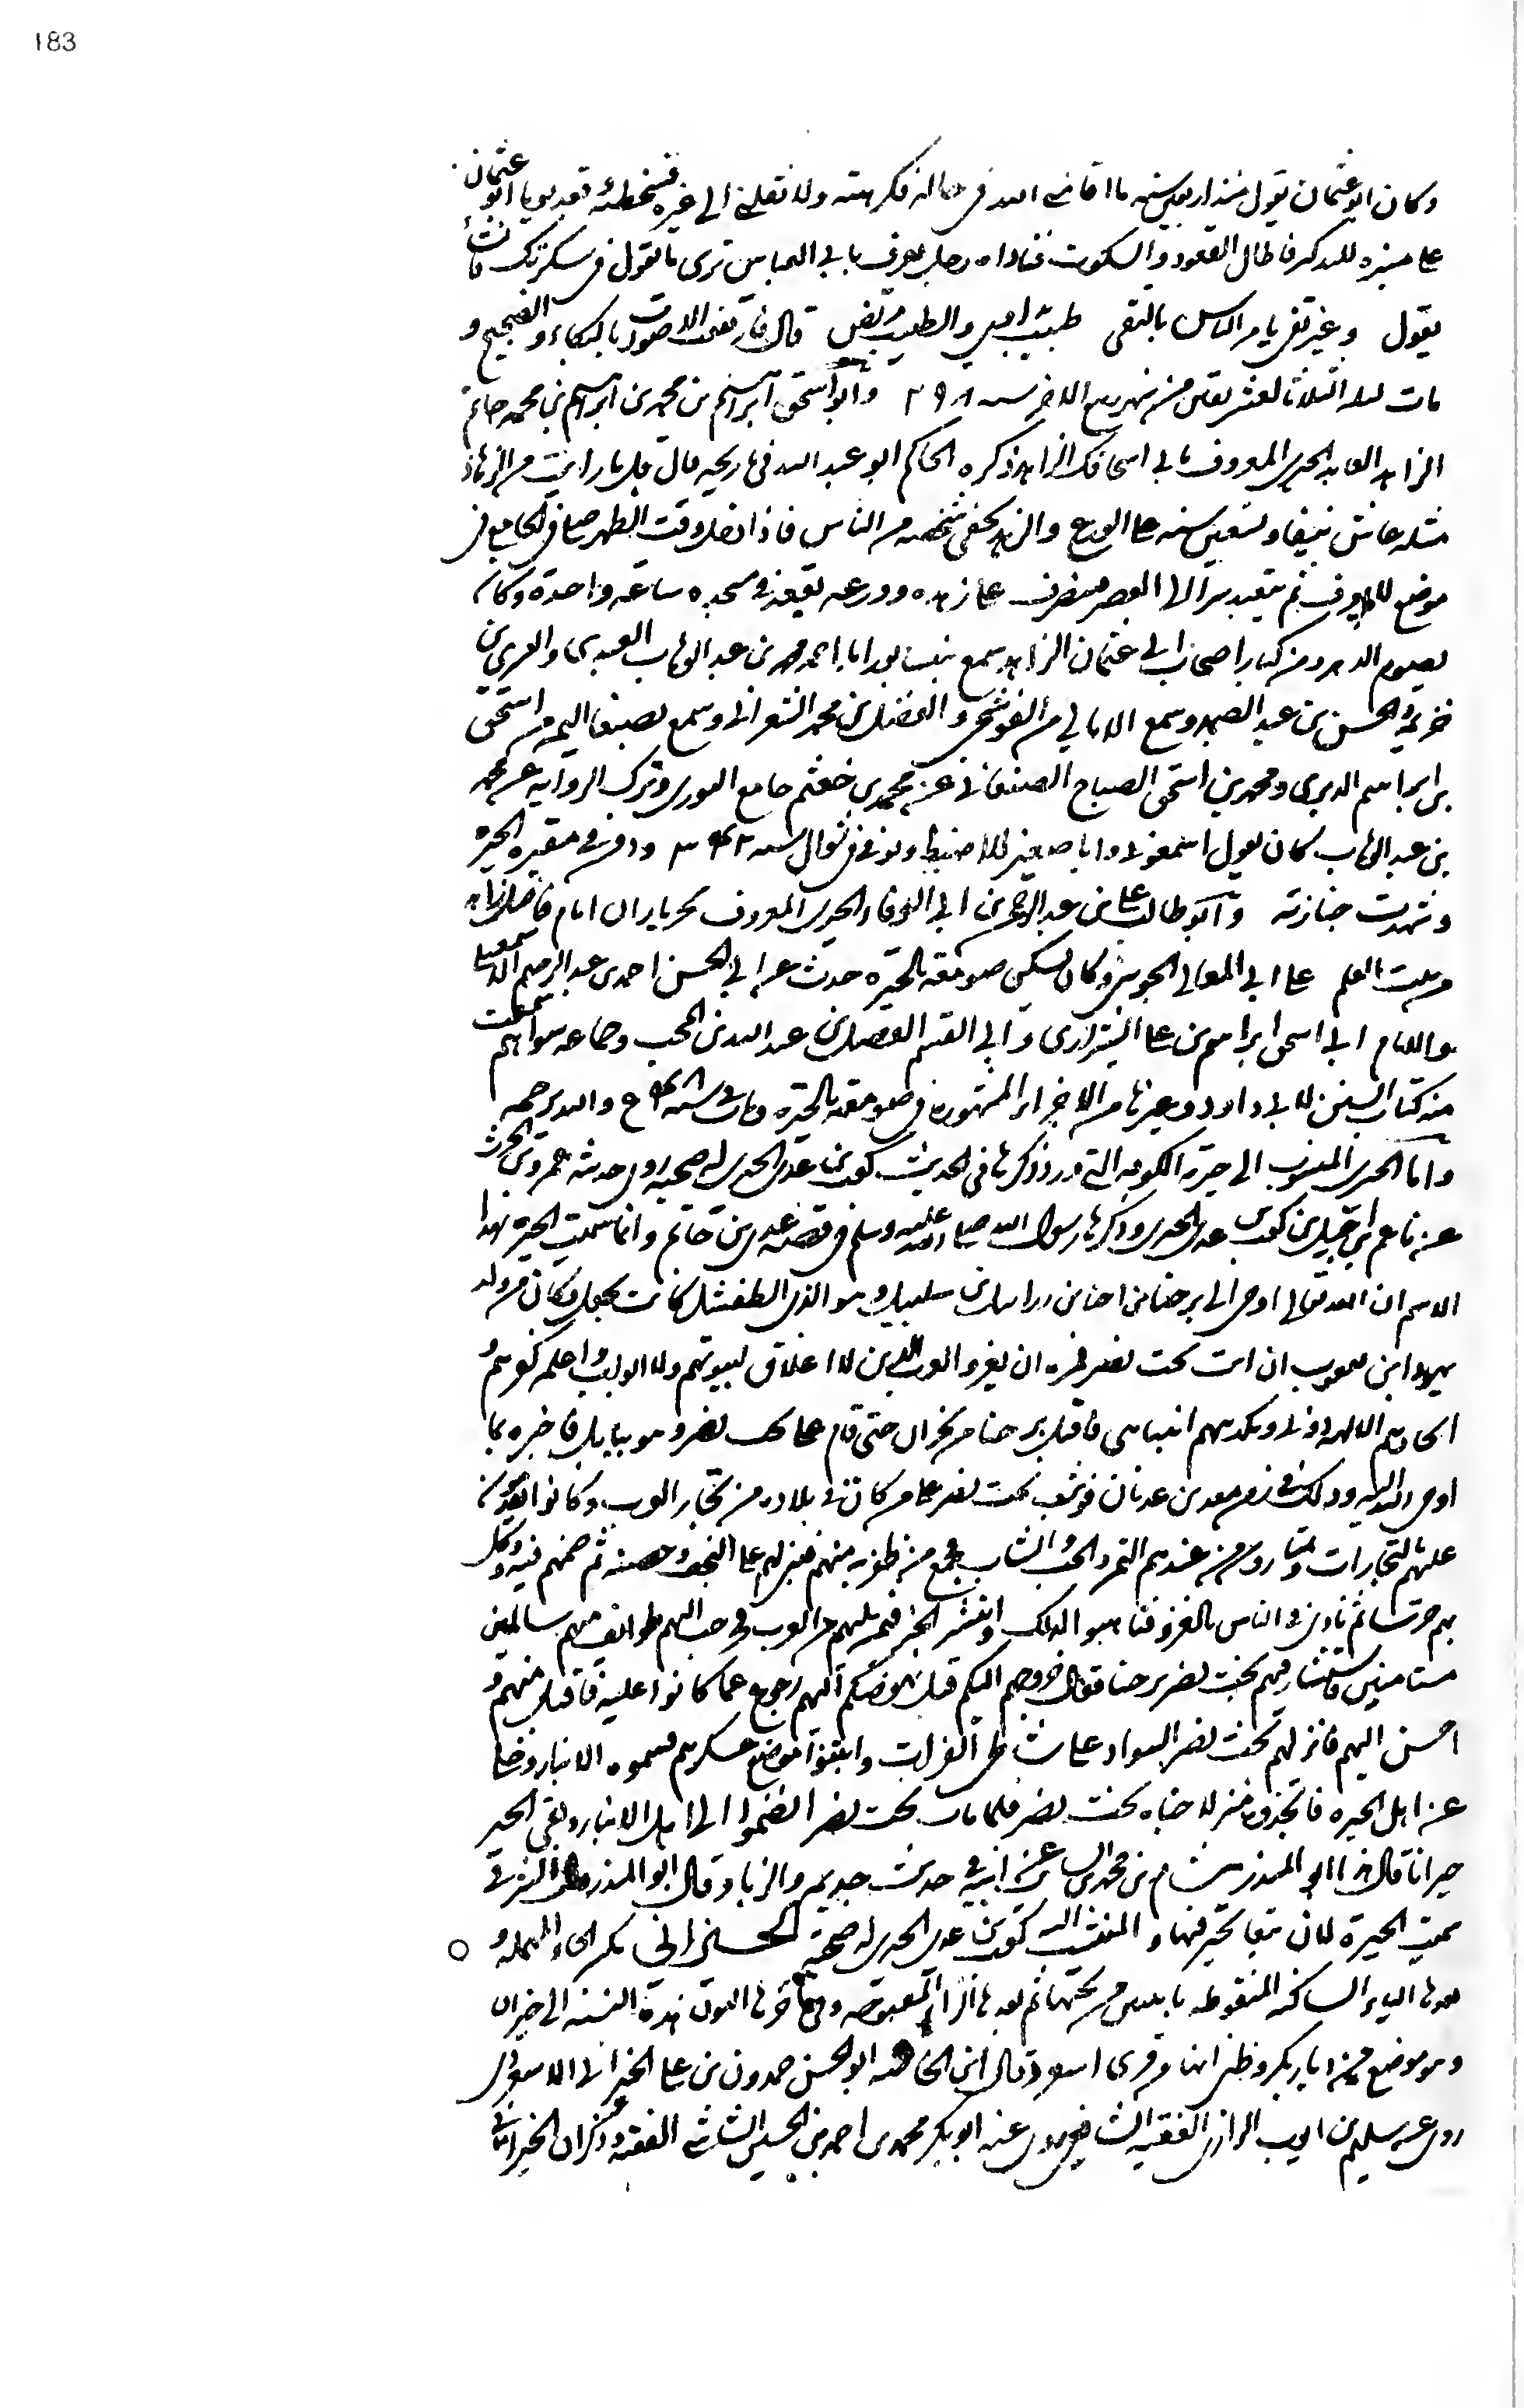 183
وكان ابو عثمان يقول منذ اربعين سنه ما اقامني الله في حاله فكرهته ولا نقلني الى غيره فسخطته قعد يوما ابو عثمان
على منبره للتذكير فاطال القعود والسكوت فناداه رجل يعرف بابي العباس ترى ما تقول في سكوتك فانشأ
يقول وغير تقي يامر الناس بالتقى طبيب يداوي والطبيب مريض قال فارتفعت الاصوات بالبكاء والضجيج و
مات ليلة الثلاثا لعشر بقين من شهر ربيع الاخر سنه ٢٩٨ وابو اسحق ابراهيم بن محمد بن ابراهيم بن محمد حاتم
الزاهد العابد الحيري المعروف بابي اسحاقك الزاهد ذكره الحاكم ابو عبد الله في تاريخه قال قل ما رايت من الزهاد
مثله عاش نيفا وتسعين سنه على الورع والزهد يخفي شخصه من الناس فاذا دخل وقت الظهر صلى في الجامع في
موضع لا يعرف ثم يتعبد سرا الى العصر فينصرف على زهده وورعه يقعد في مسجده ساعة واحدة وكان
يصوم الدهر ومن كبار اصحاب ابي عثمان الزاهد سمع بنيسابور ابا احمد محمد بن عبد الوهاب العبدي والسري بن
خزيمة والحسن بن عبد الصمد وسمع الامالي من البوشنجي والفضل بن محمد الشعراني وسمع بصنعا اليمن من اسحق
بن ابراهيم الدبري ومحمد بن اسحق الصباح الصنعاني عن محمد بن خعثم جامع الثوري وترك الرواية عن محمد
بن عبد الوهاب كان يقول اسمعوني وانا صغير لا اضبط وتوفي في شوال سنه ودفن في مقبرة الحيرة
وشهدت جنازته وابو طالب علي بن عبد الرحمن ابي الوفاء الحيري المعروف امام فاضل زاهد
العلم على ابي المعالي الجويني وكان يسكن صومعة بالحيرة حدث عن ابي الحسن احمد بن عبد الرحيم الاسمعيلي
والامام ابي اسحق ابراهيم بن علي الشيرازي وابي القسم الفضل بن عبد الله بن المحب وجماعه سواهم سمعت
منه كتاب السنن لابي داود وغيرها من الاجزاء المنثورة في صومعته بالحيرة ومات في سنه والله يرحمه
واما الحيري المنسوب الى حيرة الكوفة التي ورد ذكرها في الحديث كعب بن عدي الحيري له صحبة روى حديثه عمرو بن الحرث
عن ناعم بن اجيل بن كعب عدي الحيري وذكرها رسول الله صلى الله عليه وسلم في قصة عدي بن حاتم وانما سميت الحيرة بهذا
الاسم ان الله تعالى اوحى الى برخنا بن احنا بن بن سلبيل وهو الذي الطفشل كانت تجعل وكان من ولد
يهودا بن يعقوب ان ائت بخت نصر فمره ان يغزو العرب الذين لا اغلاق لبيوتهم ولا ابواب واعلمه كفرهم و
اتخاذهم الالهة دوني وتكذيبهم انبيائي فاقبل برخنا من نجران حتى قدم على بخت نصر وهو ببابل فاخبره بما
اوحى الله اليه وذلك في زمن معد بن عدنان فوثب بخت نصر على من كان في بلاده من تجار العرب وكانوا يقدمون
عليهم بالتجارات ويمتارون من عندهم التمر والحب والثياب فجمع من ظفر به منهم فبنى لهم على النجف وحصنه ثم ضمهم فيه ووكل
بهم حرسا ثم نادى في الناس بالغزو فتاهبوا لذلك وانتشر الخبر فيمن يليهم من العرب فخرجت اليهم طوايف منهم سالمين
مستامنين فاستشار فيهم بخت نصر برخنا فقال خروجهم اليكم قبل نهوضكم اليهم رجوع عما كانوا عليه فاقبل منهم و
احسن اليهم فانزلهم بخت نصر السواد على شاطئ الفرات وابتنوا موضع عسكرهم فسموه الانبار وخلى
عن اهل الحيره فاتخذوها منزلا حياة بخت نصر فلما مات بخت نصر انضموا الى اهل الانبار وبقي الحير
خرابا قال هذا ابو المنذر هشام بن محمد بن السائب عن ابيه في حديث جذيمة والزبا وقال ابو المنذر
سميت الحيرة لان تبعا تحير فيها و المنتسب اليه كعب بن عدي الحيري له صحبة الخيزاني بكسر الخاء المعجمة و
بعدها الياء الساكنه المنقوطه باثنتين من تحتها ثم بعدها الزاء المفتوحه وفي اخرها النون هذه النسبة الى خيزان
وهو موضع من ديار بكر وظني انها من قرى اسعرد قال ابن ابو الحسن حمدون بن علي الخيزاني الاسعردي
روى عن سليم بن ايوب الرازي الفقيه الشافعي روى عنه ابو بكر محمد بن احمد بن الحسين الشاشي الفقيه وذكر ان الخيزاني